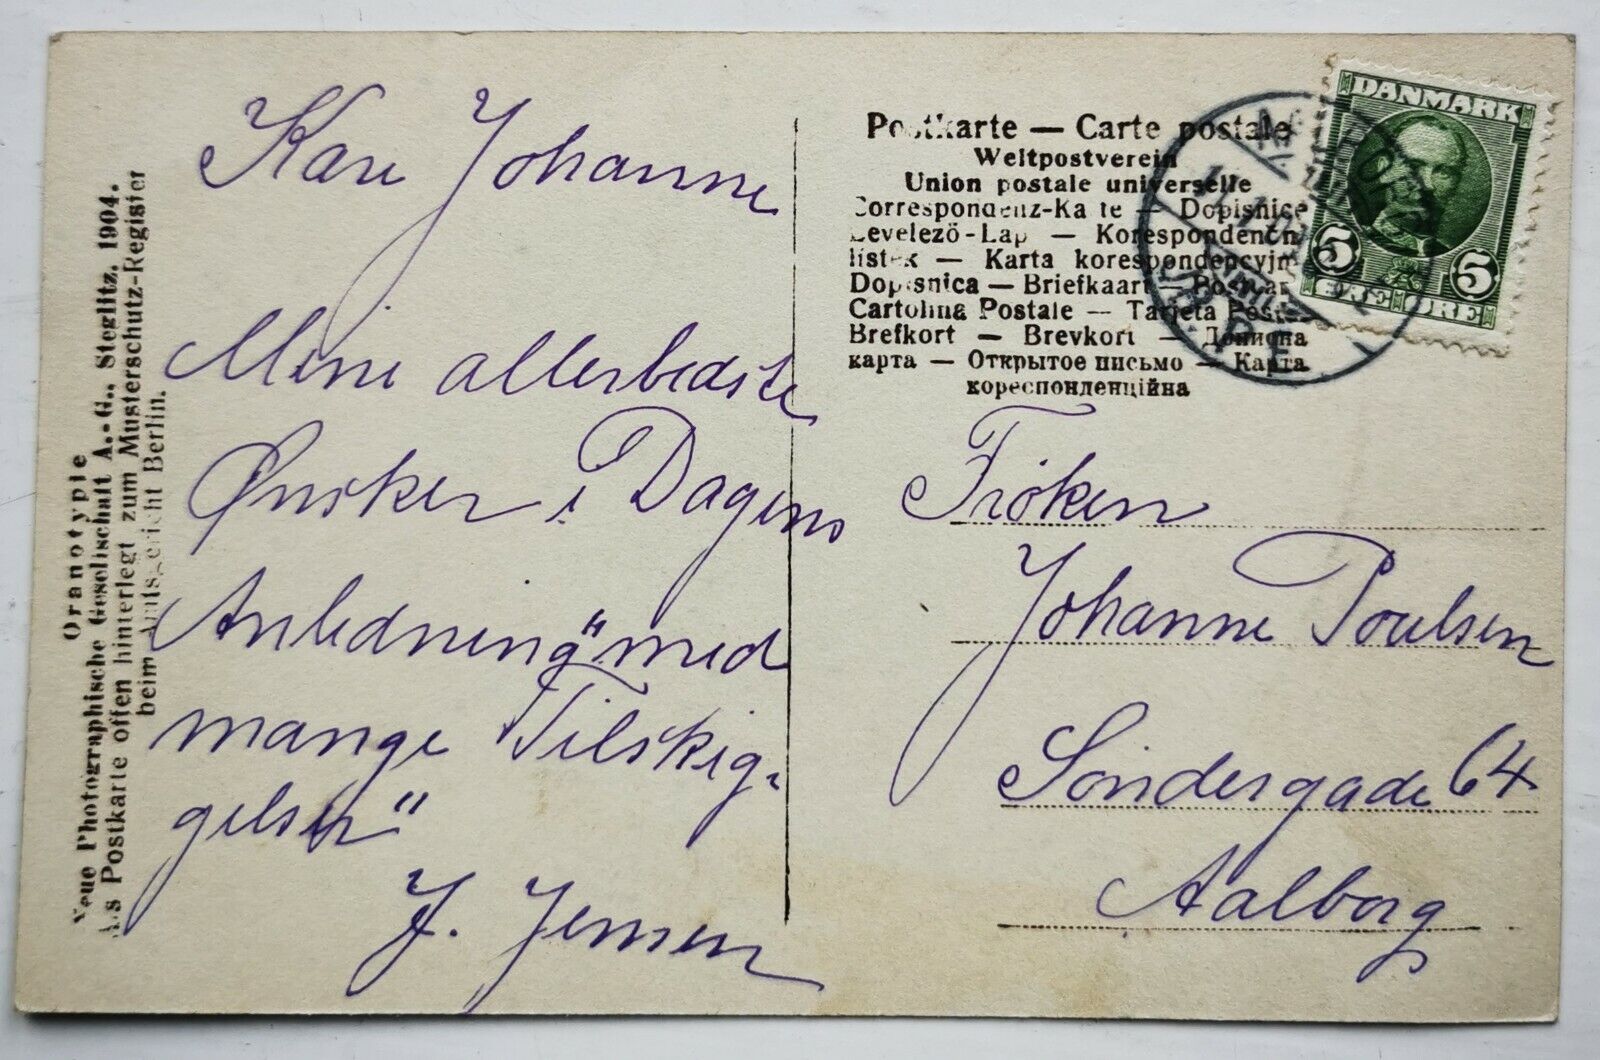 Oranotypie
Neue Photographische Gesellschaft A.-G., Steglitz. 1904.
Als Postkarte offen hinterlegt zum Musterschutz-Register
beim Amtsgericht Berlin.
Kære Johanne
Mine allerbedste
Ønsker i Dagens
Anledning "med
mange Tilskig-
gelser"
J. Jensen
Postkarte — Carte postale
Weltpostverein
Union postale universelle
Correspondenz-Karte — Dopisnice
Levelező-Lap — Korespondenčni
listek — Karta korespondencyjna
Dopisnica — Briefkaart — Postkarte
Cartolina Postale — Tarjeta Postal
Brefkort — Brevkort — Дописна
карта — Открытое письмо — Карта
кореспонденційна
DANMARK
5 5
ØRE
Fröken
Johanne Poulsen
Söndergade 64
Aalborg